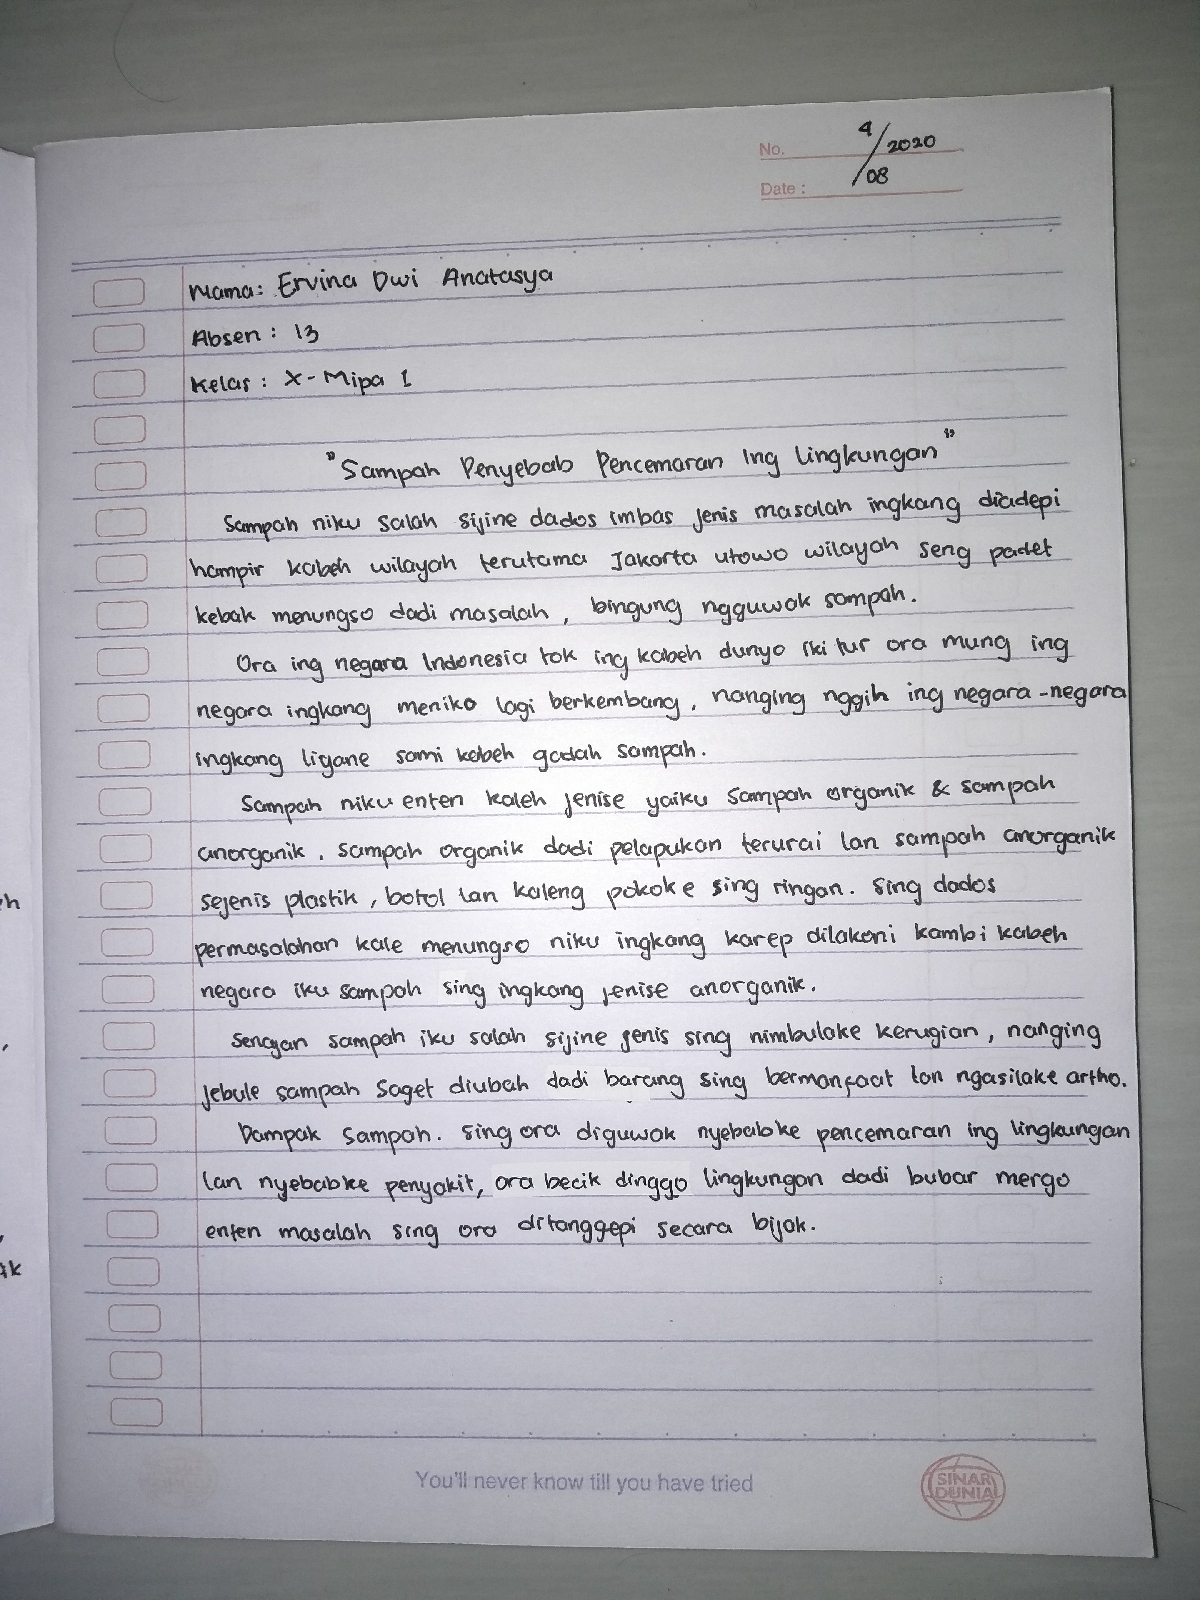 No. 4/2020
Date : /08
Nama: Ervina Dwi Anatasya
Absen : 13
Kelas : X- Mipa 1
"Sampah Penyebab Pencemaran Ing Lingkungan"
Sampah niku salah sijine dados imbas jenis masalah ingkang diadepi
hampir kabeh wilayah terutama Jakarta utowo wilayah seng padet
kebak menungso dadi masalah, bingung ngguwak sampah.
Ora ing negara Indonesia tok ing kabeh dunyo iki tur ora mung ing
negara ingkang meniko lagi berkembang, nanging nggih ing negara-negara
ingkang liyane sami kabeh gadah sampah.
Sampah niku enten kaleh jenise yaiku sampah organik & sampah
anorganik. sampah organik dadi pelapukan terurai lan sampah anorganik
sejenis plastik, botol lan kaleng pokoke sing ringan. Sing dados
permasalahan kale menungso niku ingkang karep dilakoni kambi kabeh
negara iku sampah sing ingkang jenise anorganik.
Senajan sampah iku salah sijine jenis sing nimbulake kerugian, nanging
jebule sampah saget diubah dadi barang sing bermanfaat lan ngasilake artho.
Dampak sampah. sing ora diguwak nyebabke pencemaran ing lingkungan
lan nyebabke penyakit, ora becik dinggo lingkungan dadi bubar mergo
enten masalah sing ora ditanggepi secara bijak.
You'll never know till you have tried
SINAR
DUNIA